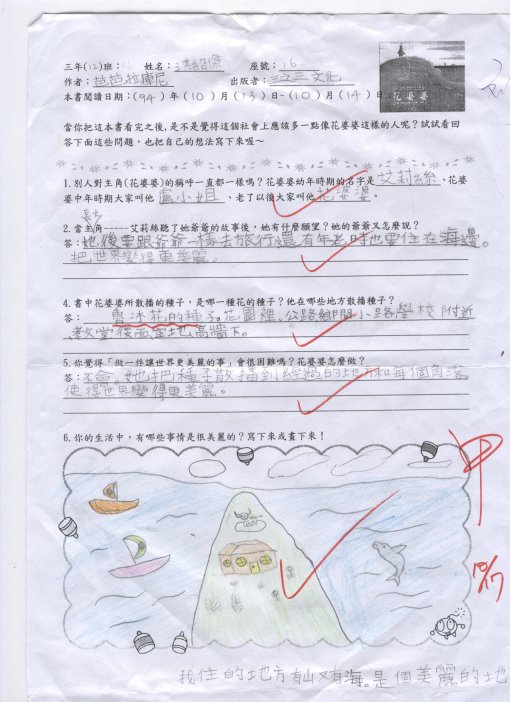 三年(12)班：11 姓名：洪紹傑 座號：16
作者：芭芭拉庫尼 出版者：三之三文化
本書閱讀日期：(94)年(10)月(13)日-(10)月(14)日
花婆婆
當你把這本書看完之後,是不是覺得這個社會上應該多一點像花婆婆這樣的人呢？試試看回
答下面這些問題，也把自己的想法寫下來喔～
1.別人對主角(花婆婆)的稱呼一直都一樣嗎？花婆婆幼年時期的名字是 艾莉絲、花婆
婆中年時期大家叫他 盧小姐、老了以後大家叫他 花婆婆。
長大
2.當主角-----艾莉絲聽了她爺爺的故事後，她有什麼願望？她的爺爺又怎麼說？
答：她 要跟爺爺一樣去旅行還有年老時也要住在海邊。
把世界變得更美麗。
4.書中花婆婆所散播的種子，是哪一種花的種子？他在哪些地方散播種子？
答： 魯冰花的種子。花園裡、公路鄉間小路學校附近
教堂後面空地高牆下。
5.你覺得「做一件讓世界更美麗的事」會很困難嗎？花婆婆怎麼做？
答：不會。她把種子散播到經過的地方和每個角落
使得世界變得更美麗。
6.你的生活中，有哪些事情是很美麗的？寫下來或畫下來！
甲
10/17
我住的地方有山又有海。是個美麗的地